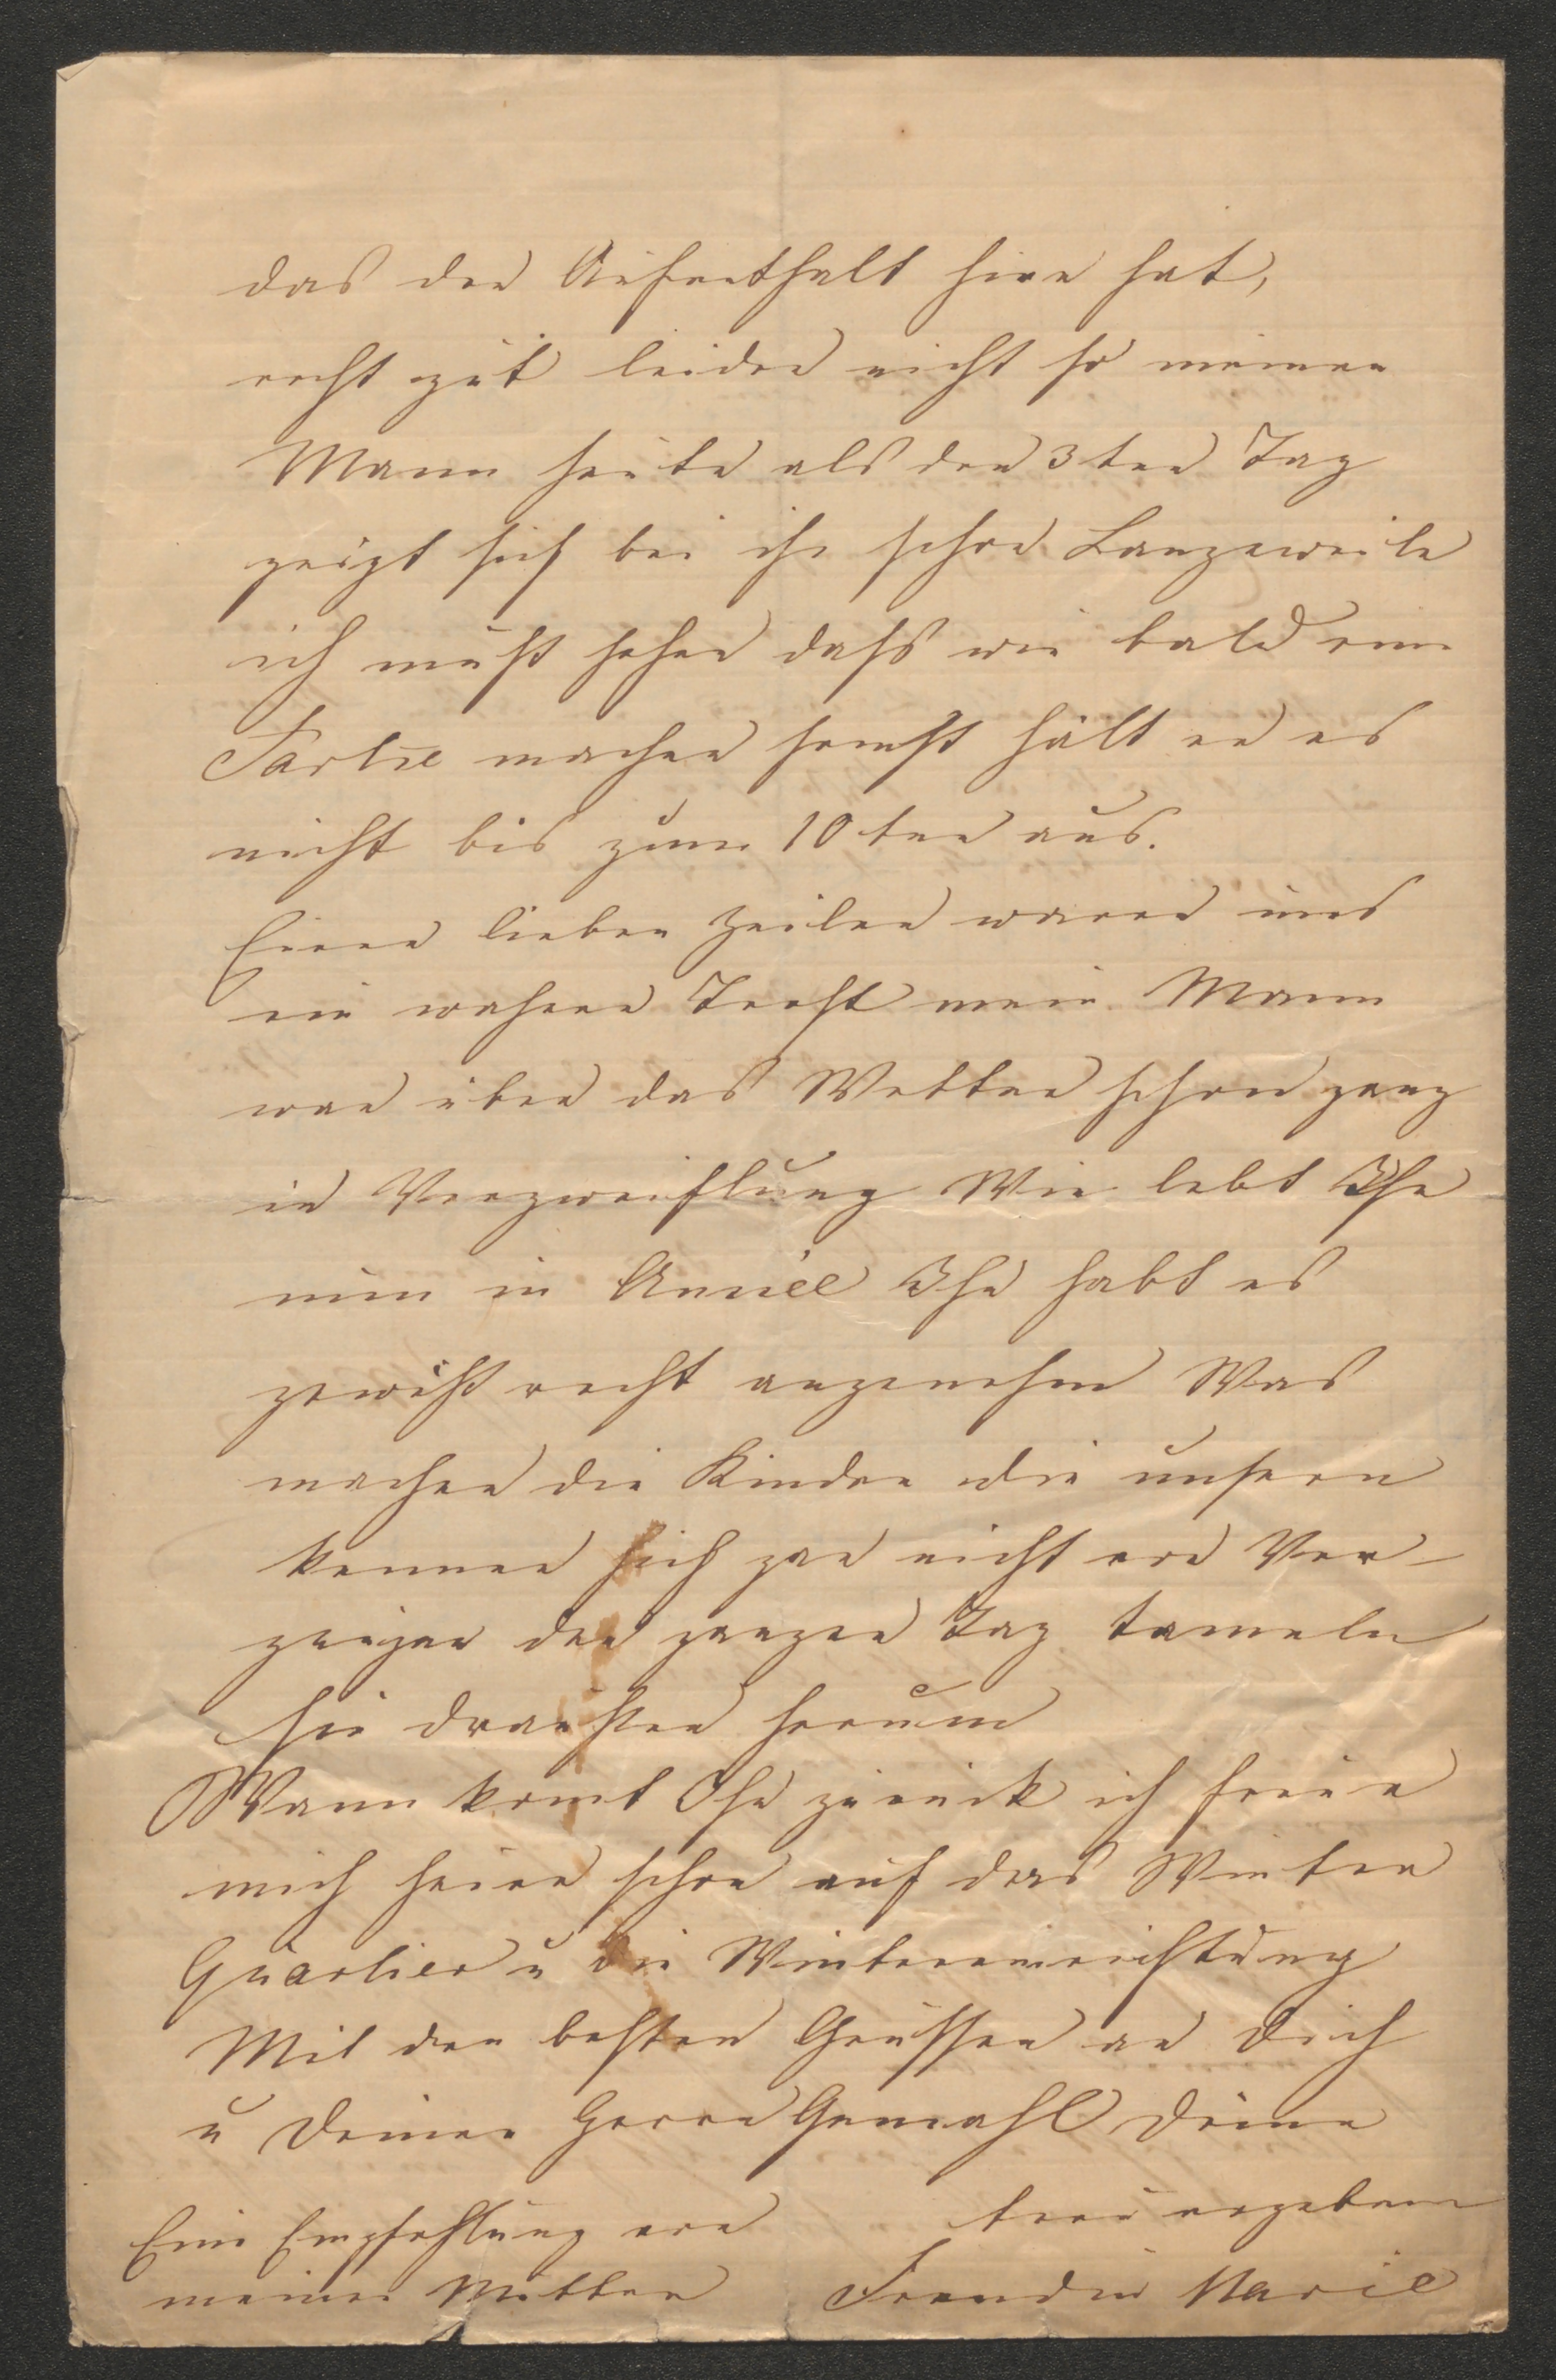 das der Aufenthalt hier hat,
recht gut leider nicht so meinen
Mann heute als den 3ten Tag
zeigt sich bei ihr schon Langeweile
ich muß sehen daß wir bald eine
Partie machen sonst hält er es
nicht bis zum 10ten aus.
Eure lieben Zeilen waren uns
ein wahrer Trost mein Mann
war über das Wetter schon ganz
in Verzweiflung Wie lebt Ihr
nun in Ihr habt es
gewiß recht angenehm Was
machen die Kinder die unsern
kennen sich gar nicht vor Ver-
gnügen den ganzen Tag tameln
sie draußen herum
Wann komt Ihr zurück ich freue
mich heuer schon auf das Winter
Quartier u die Wintereinrichtung
Mit den besten Grüssen an Dich
u Deinen Herrn Gemahl Deine
treu ergebene
Eine Empfehlung von
meiner Mutter Freundin Marie